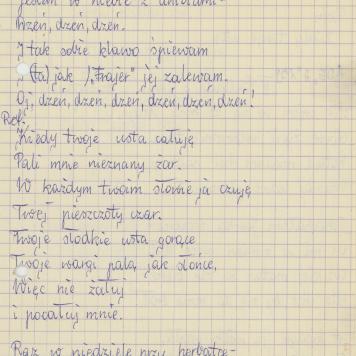 jestem w niebie z aniołami-
Dzeń, dzeń, dzeń.
I tak sobie klawo śpiewam
(ta) jak "frajer" jej zalewam.
Oj, dzeń, dzeń, dzeń, dzeń, dzeń, dzeń!
Ref.
Kiedy twoje usta całuję
Pali mnie nieznany żar.
W każdym twoim słowie ja czuję
Twej pieszczoty czar.
Twoje słodkie usta gorące
Twoje wargi palą jak słońce,
Więc nie żałuj
i pocałuj mnie.
Raz w niedzielę przy herbatce-